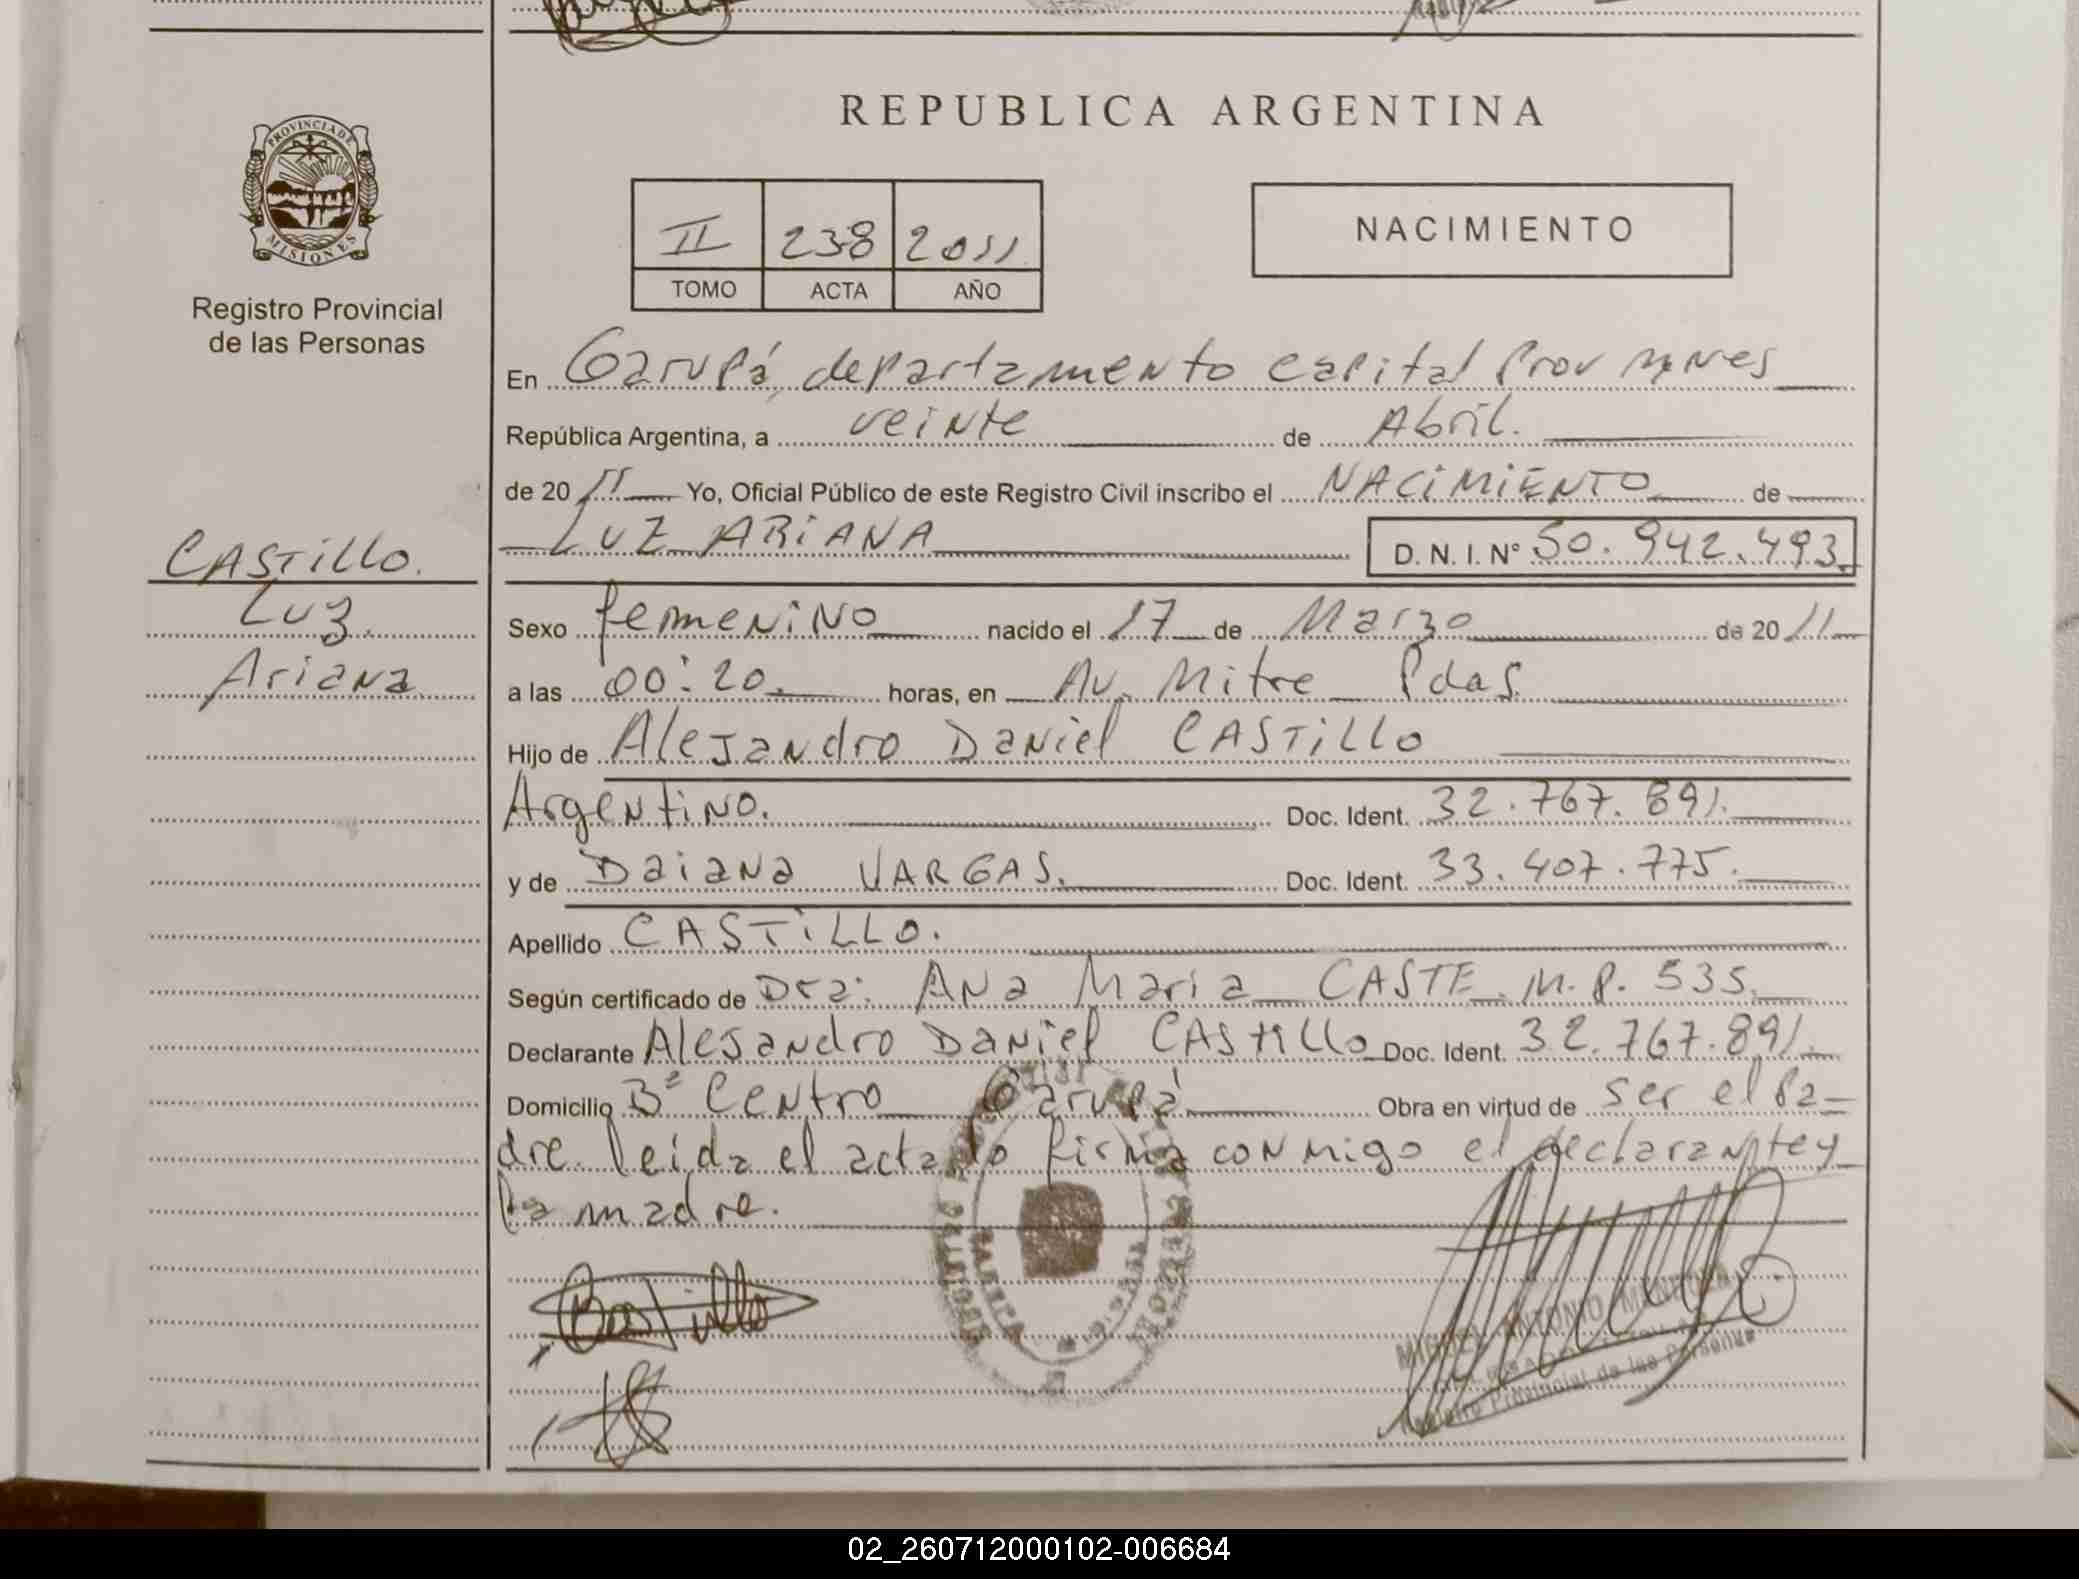 REPUBLICA ARGENTINA
PROVINCIA DE
MISIONES
Registro Provincial
de las Personas
II 238 2011
TOMO ACTA AÑO
NACIMIENTO
En Garupá, departamento capital Prov
República Argentina, a veinte de Abril.
de 20 11 Yo, Oficial Público de este Registro Civil inscribo el NACIMIENTO de
LUZ ARIANA D. N. I. N° 50.942.493
CASTILLO.
Luz.
Ariana
Sexo femenino nacido el 17 de Marzo de 20 11
a las 00:20 horas, en Av. Mitre Pdas.
Hijo de Alejandro Daniel CASTILLO
Argentino. Doc. Ident. 32.767.891.
y de Daiana VARGAS. Doc. Ident. 33.407.775.
Apellido CASTILLO.
Según certificado de Dra: Ana Maria CASTE M.P. 535.
Declarante Alejandro Daniel CASTILLO Doc. Ident. 32.767.891.
Domicilio B° Centro Garupá Obra en virtud de ser el Pa-
dre. leida el acta lo firma conmigo el declarante y
la madre.
Castillo
MIGUEL ANTONIO MENDOZA
Registro Provincial de las Personas
02_260712000102-006684